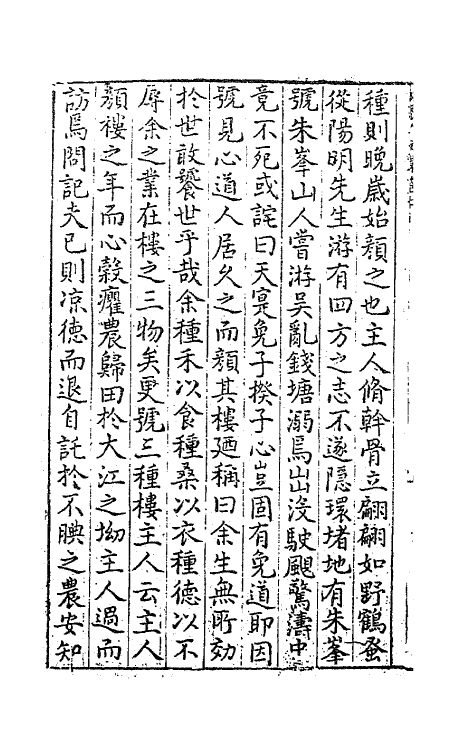 種則晚歲始顏之也主人脩幹骨立翩翩如野鶴蚤
從陽明先生游有四方之志不遂隱環堵地有朱峯
號朱峯山人嘗游吳亂錢塘溺焉出沒駛颶驚濤中
竟不死或詫曰天寔免子揆子心豈固有免道耶因
號見心道人居久之而顏其樓廼稱曰余生無所効
於世敢饕世乎哉余種禾以食種桑以衣種德以不
辱余之業在樓之三物矣更號三種樓主人云主人
顏樓之年而心穀癯農歸田於大江之坳主人過而
訪焉閤記夫已則凉德而退自託於不腆之農安知